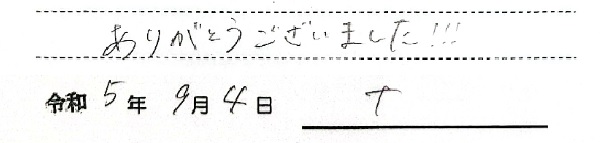 ありがとうございました!!!
令和 5年 9月 4日 T